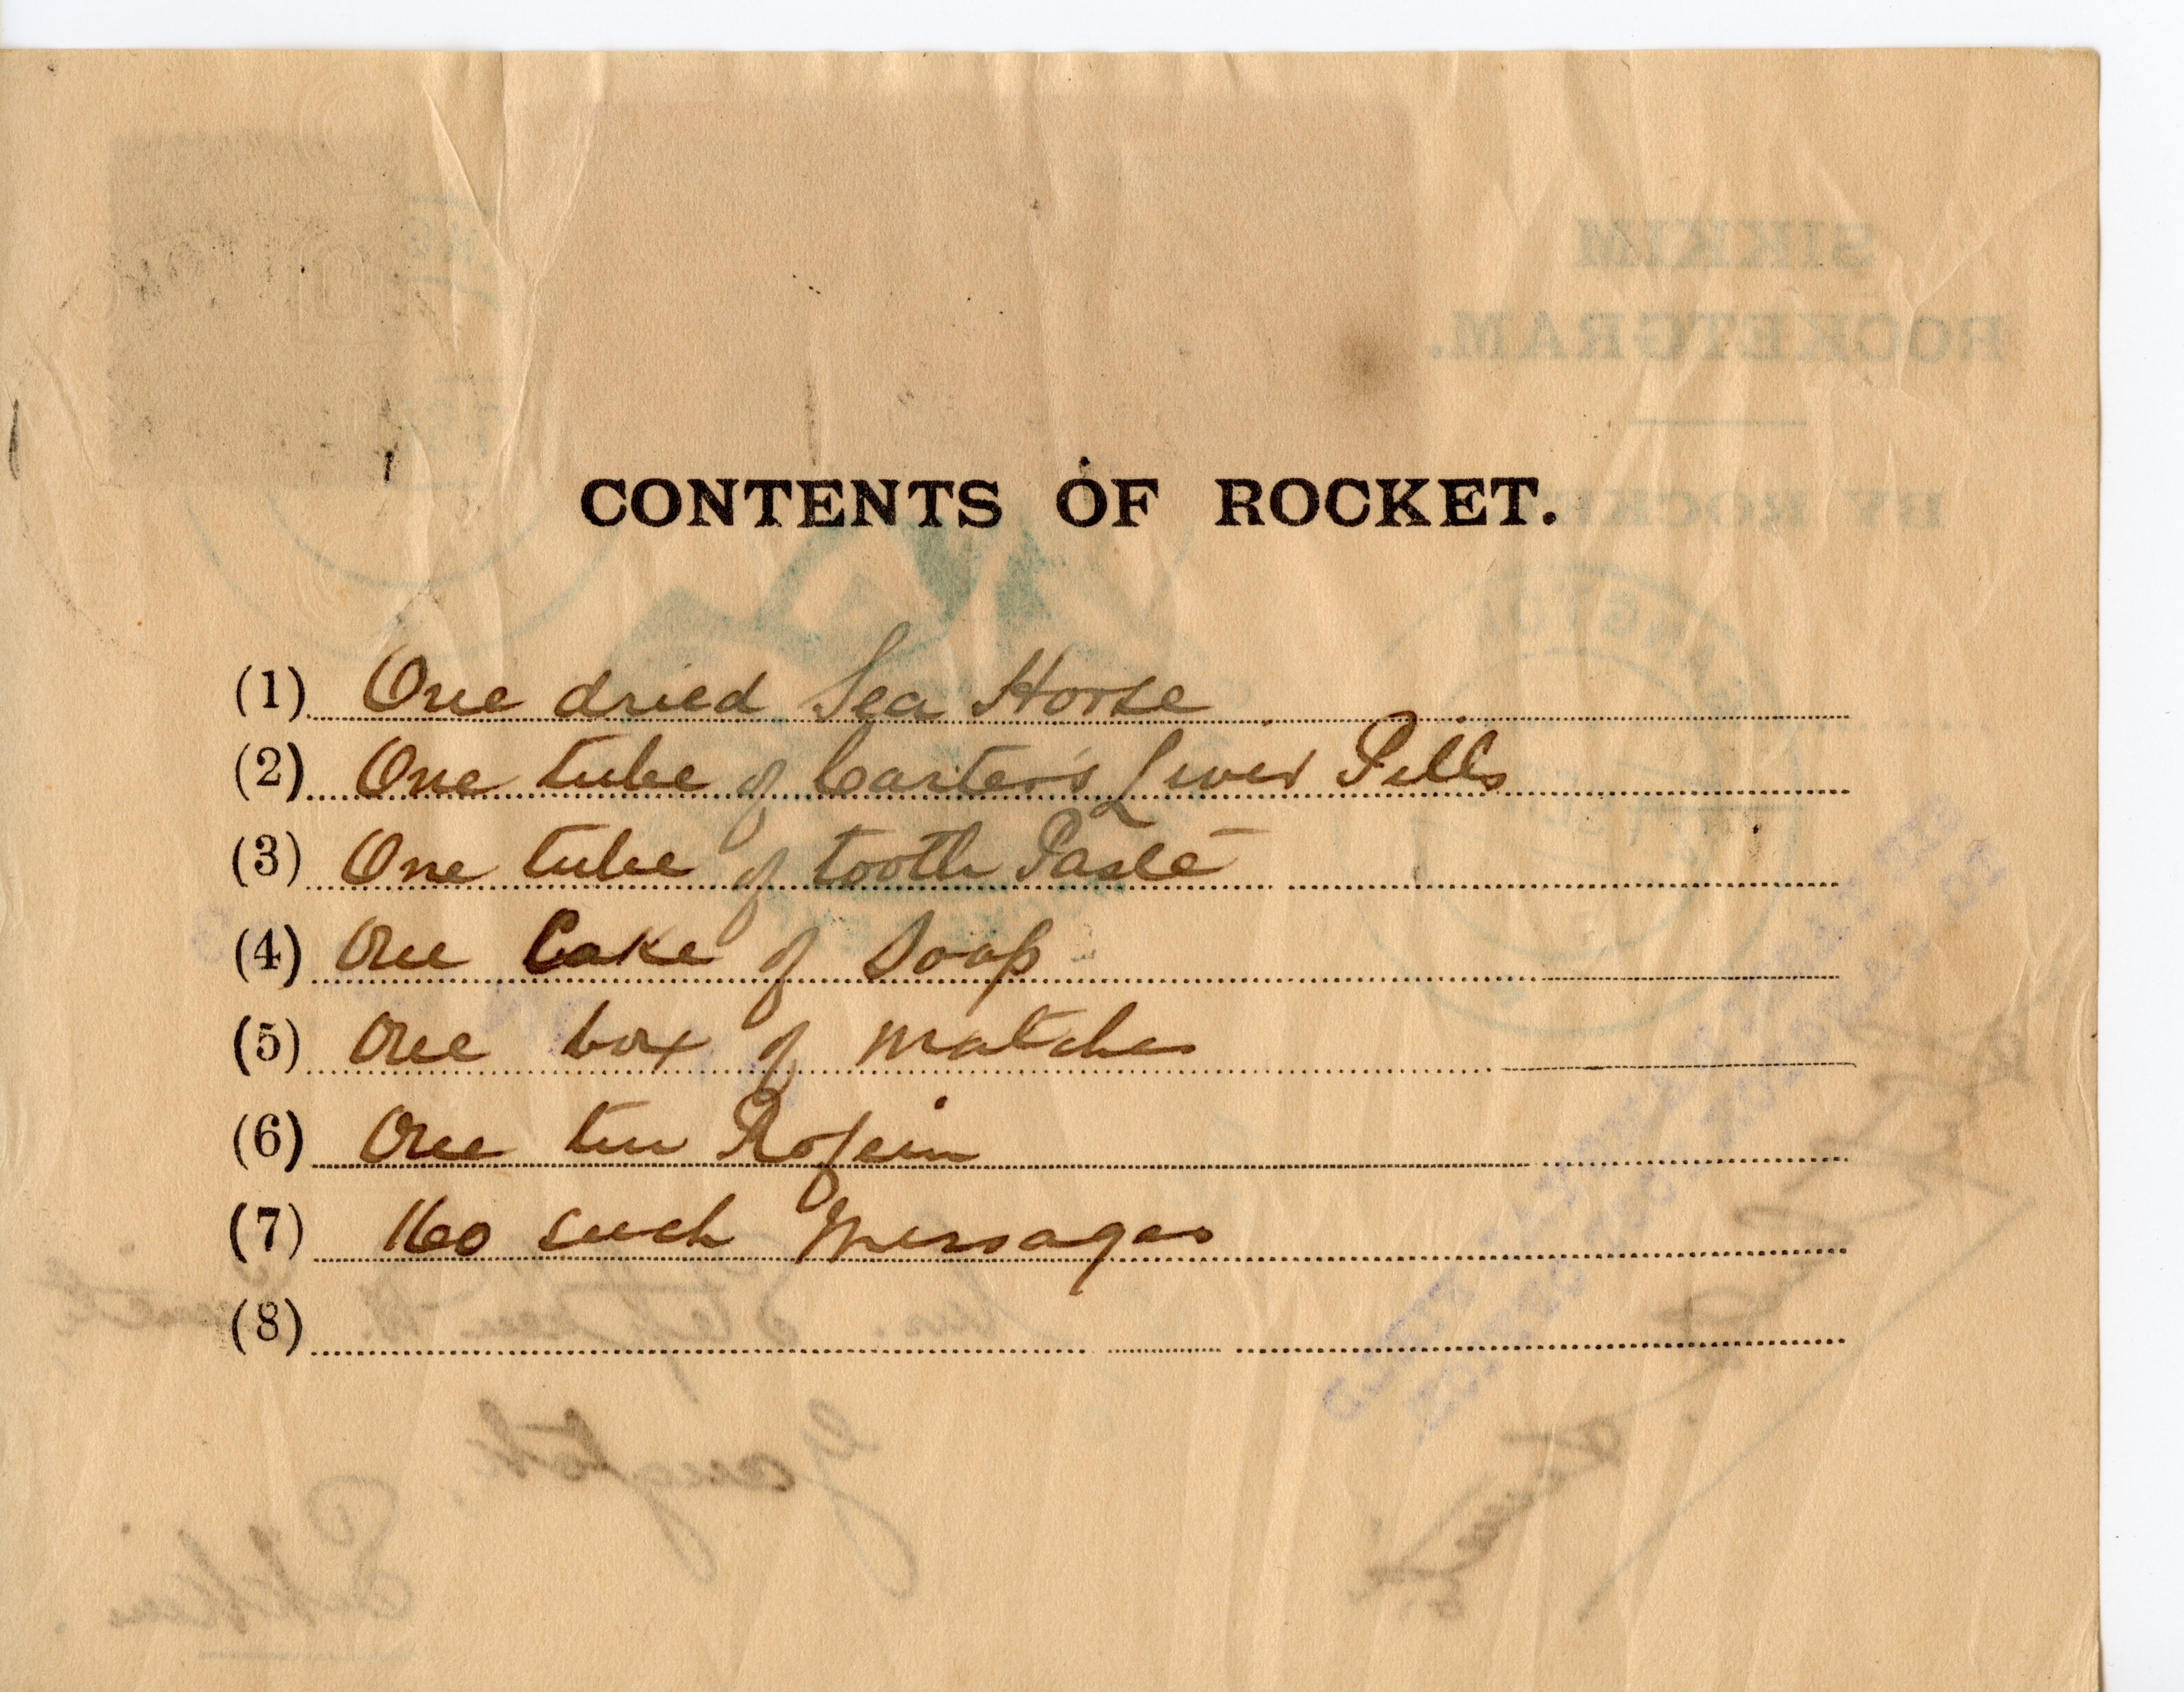 SIKKIM
ROCKETGRAM.
BY ROCKE
CONTENTS OF ROCKET.
(1) One dried Sea Horse
(2) One tube of Carter's Liver Pills
(3) One tube of tooth Paste
(4) One Cake of Soap
(5) One box of matches
(6) One tin
(7) 160 such Messages
(8)
Gangtok.
Sikkim.